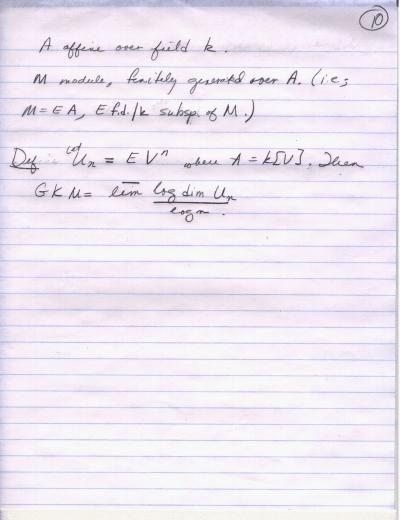 10
A affine over field k.
M module, finitely generated over A. (i.e;
M = E A, E f.d./k subsp. of M.)
Def let Uₙ = E Vⁿ where A = k[V]. Then
G K M = lim̅ log dim Uₙ / log n.